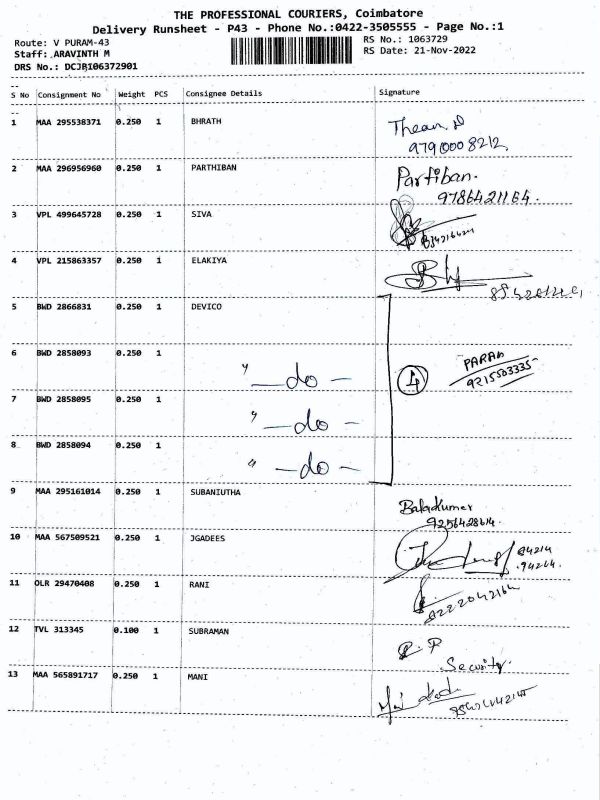 THE PROFESSIONAL COURIERS, Coimbatore
Delivery Runsheet - P43 - Phone No.:0422-3505555 - Page No.:1
Route: V PURAM-43 RS No.: 1063729
Staff: ARAVINTH M RS Date: 21-Nov-2022
DRS No.: DCJB106372901
S No Consignment No Weight PCS Consignee Details Signature
1 MAA 295538371 0.250 1 BHRATH
9790008212
2 MAA 296956960 0.250 1 PARTHIBAN Partiban.
9786421164.
3 VPL 499645728 0.250 1 SIVA
4 VPL 215863357 0.250 1 ELAKIYA
5 BWD 2866831 0.250 1 DEVICO
6 BWD 2858093 0.250 1
" — do — 4
9215503335
7 BWD 2858095 0.250 1
" — do —
8 BWD 2858094 0.250 1
" — do —
9 MAA 295161014 0.250 1 SUBANIUTHA Balakumar
9256428614.
10 MAA 567509521 0.250 1 JGADEES
11 OLR 29470408 0.250 1 RANI
12 TVL 313345 0.100 1 SUBRAMAN
Security.
13 MAA 565891717 0.250 1 MANI